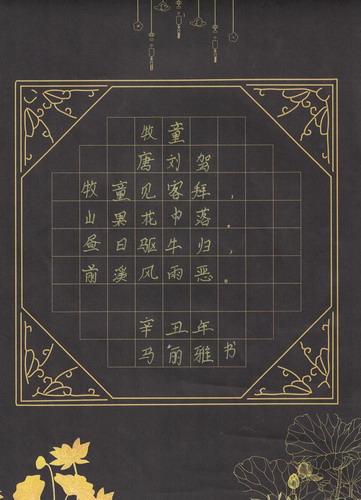 牧童
唐刘驾
牧童见客拜，
山果花中落。
昼日驱牛归，
前溪风雨恶。
辛丑年
马丽雅书